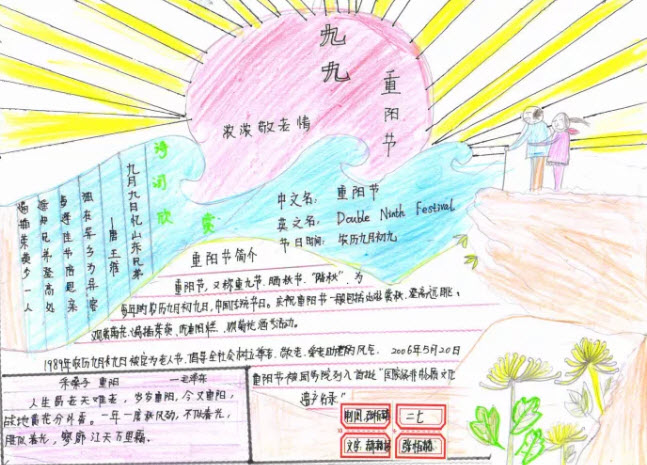 九九
重阳节
浓浓敬老情
诗词欣赏
九月九日忆山东兄弟
—唐 王维
独在异乡为异客
每逢佳节倍思亲
遥知兄弟登高处
遍插茱萸少一人
中文名: 重阳节
英文名: Double Ninth Festival
节日时间: 农历九月初九
重阳节简介
重阳节,又称重九节、晒秋节、“踏秋”,为
每年的农历九月初九日,中国传统节日。庆祝重阳节一般包括出游赏秋、登高远眺、
观赏菊花、遍插茱萸、吃重阳糕、饮菊花酒等活动。
1989年农历九月初九日被定为老人节,倡导全社会树立尊老、敬老、爱老、助老的风气。 2006年5月20日
重阳节被国务院列入首批“国家级非物质文化
遗产名录”
采桑子 重阳 —毛泽东
人生易老天难老,岁岁重阳,今又重阳,
战地黄花分外香。一年一度秋风劲,不似春光,
胜似春光,寥廓江天万里霜。
二七